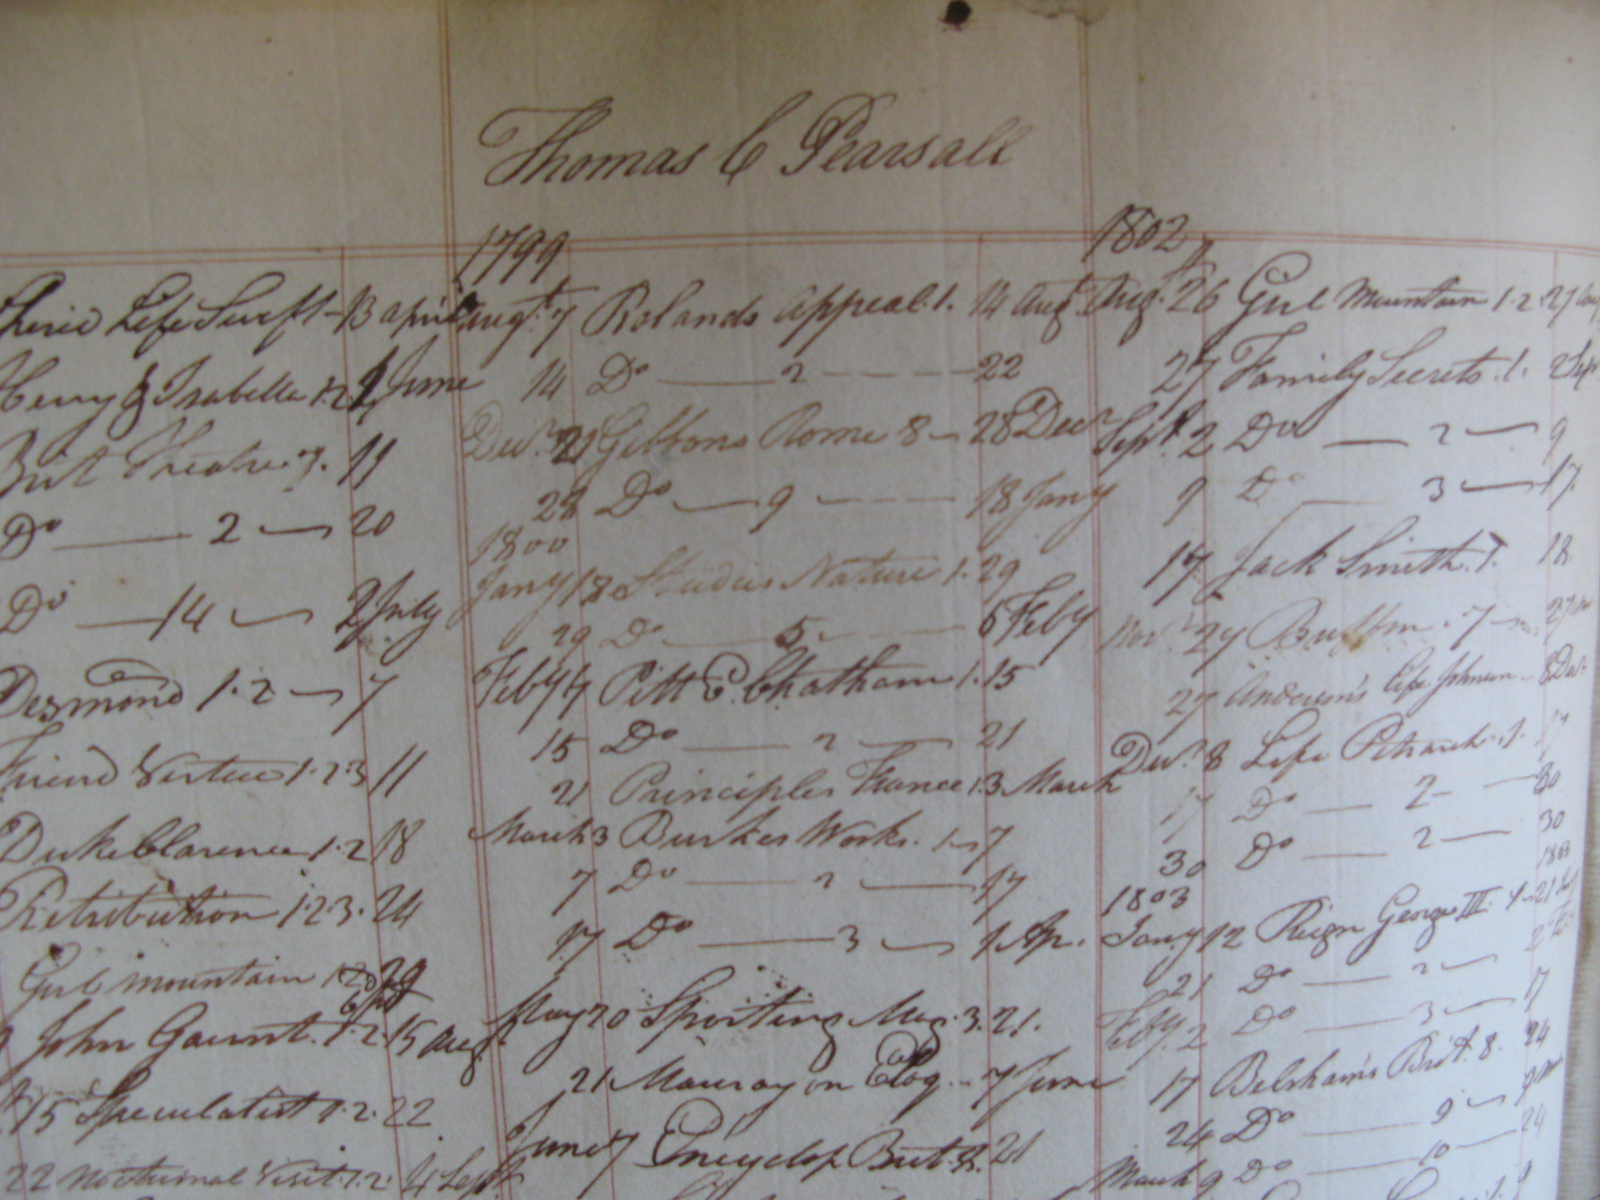 Thomas C Pearsall
Life Swift - 13 april
Henry & Isabella 1.2 1 June
Brit Theatre 7. 11
Do — 2 — 20
Do — 14 — 2 July
Desmond 1.2 — 7
Friend Virtue 1.2.3 11
Duke Clarence 1.2 18
Retribution 1.2.3. 24
Girl mountain 1.2 29
John Gaunt. 1.2 15 aug
15 Speculatist 1.2. 22
22 Nocturnal Visit. 1.2. 4 Sept
1799
augt. 7 Rolands Appeal. 1. 14 aug
14 Do — 2 — 22
Decr. 21 Gibbons Rome 8 - 28 Decr
28 Do — 9 — 18 Jany
1800
Jany 18 Studies Nature 1. 29
29 Do — 5 — 6 Feby
Feby 7 Pitt E. Chatham 1. 15
15 Do — 2 — 21
21 Principles France 1. 3 March
March 3 Burkes Works. 1 - 7
7 Do — 2 — 17
17 Do — 3 — 1 Ap.
May 20 Sporting Mag. 3. 21.
21 Mauray on Eloq. - 7 June
June 7 Encyclop Brit. 21
1802
Aug. 26 Girl Mountain 1.2. 27 Aug
27 Family Secrets. 1. 2 Sep
Sept. 2 Do — 2 — 9
9 Do — 3 — 17.
17 Jack Smith. 1. 18.
Novr. 24 Buffon. 7 - 27
27 Anderson's Life Johnson - 8 Decr
Decr. 8 Life Petrarch. 1. 17
17 Do — 2 — 30
30 Do — 2 — 30
1803 1803
Jany 12 Reign George III. 1 - 21 Jany
21 Do — 2 — 2
Feby. 2 Do — 3 — 17
17 Belsham's Brit. 8. 24
24 Do — 9 — 9
March 9 Do — 10 — 24